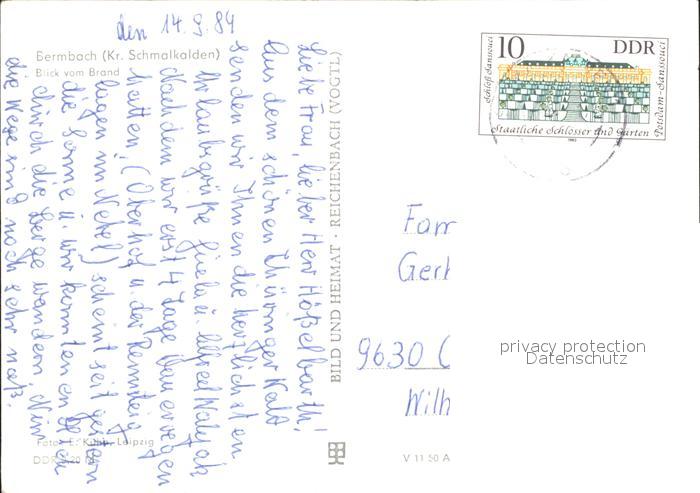 den 14.9.84
Bermbach (Kr. Schmalkalden)
Blick vom Brand
Liebe Frau, lieber Herr Hößelbarth!
Aus dem schönen Thüringer Wald
senden wir Ihnen die herzlichsten
Urlaubsgrüße
Nachdem wir erst 4 Tage
hatten, (Oberhof u. der Rennsteig
lagen im Nebel) scheint seit gestern
die Sonne u. wir konnten
durch die Berge wandern. Nur
die Wege sind noch sehr naß.
Foto: E. Kühn, Leipzig
DDR
BILD UND HEIMAT · REICHENBACH (VOGTL)
V 11 50 A
10 DDR
Schloß Sanssouci
Potsdam-Sanssouci
Staatliche Schlösser und Gärten
1983
Fam
Gerh
9630 C
Wilh
privacy protection
Datenschutz